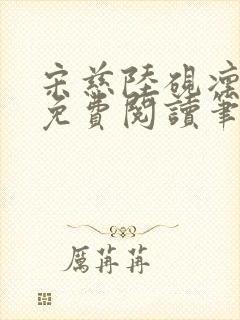 宋慈陸硯凛
免費閱讀筆
厲苒苒